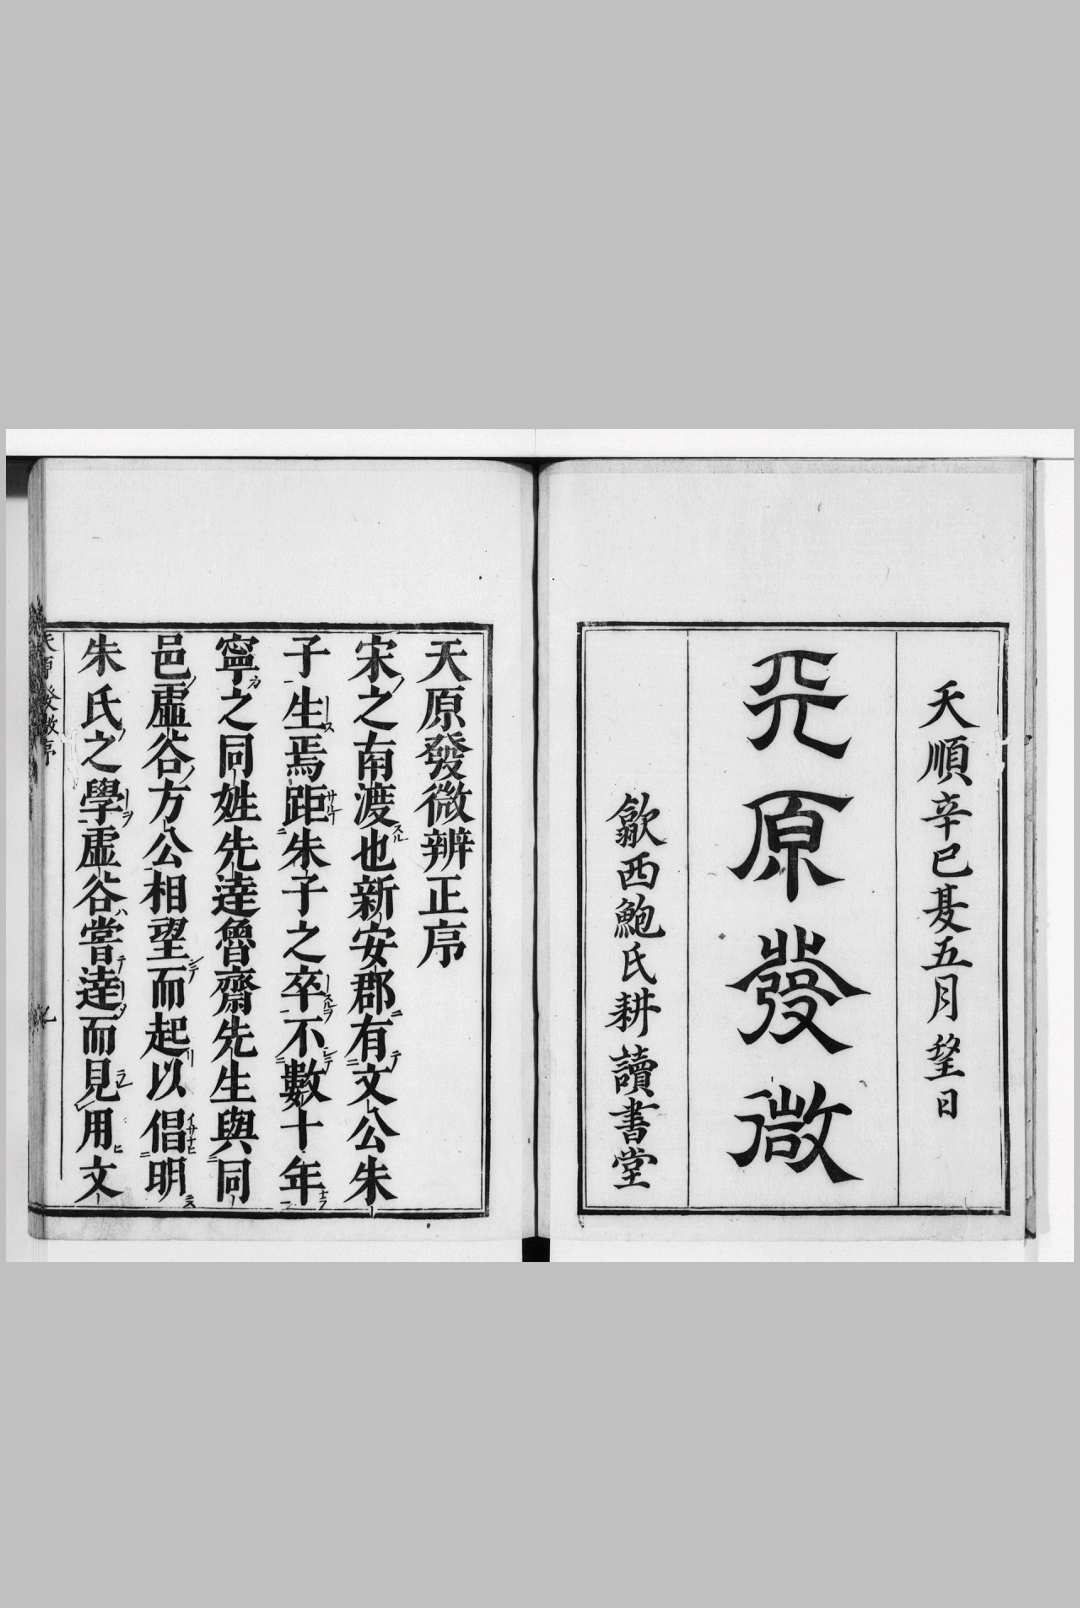 天順辛巳夏五月望日
天原發微
歙西鮑氏耕讀書堂
天原發微辨正序
宋之南渡也新安郡有文公朱
子生焉距朱子之卒不數十年
寧之同姓先達魯齋先生與同
邑虛谷方公相望而起以倡明
朱氏之學虛谷嘗達而見用文